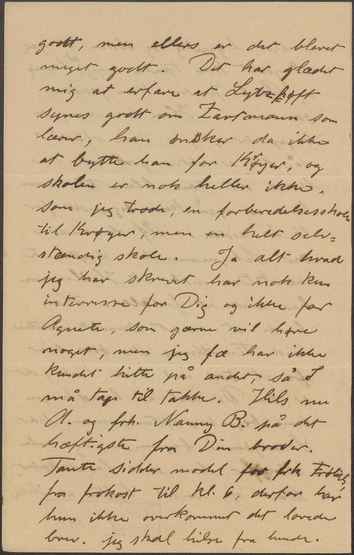 godt, men ellers er det blevet
meget godt. Det har glædet
mig at erfare at Lytzhøft
synes godt om Zartmann som
lærer, han ønsker da ikke
at bytte ham for Krøyer, og
skolen er nok heller ikke,
som jeg troede, en forberedelsesskole
til Krøyer, men en helt selv=
stændig skole. Ja alt hvad
jeg har skrevet har nok kun
interesse for Dig og ikke for
Agnete, som gærne vil høre
noget, men jeg har ikke
kunnet hitte på andet, så I
må tage til takke. Hils nu
A. og frk. Nanny B. på det
hæftigste fra Din broder.
Tante sidder model for frk
fra frokost til kl. 6, derfor har
hun ikke overkommet det lovede
brev. jeg skal hilse fra hende.